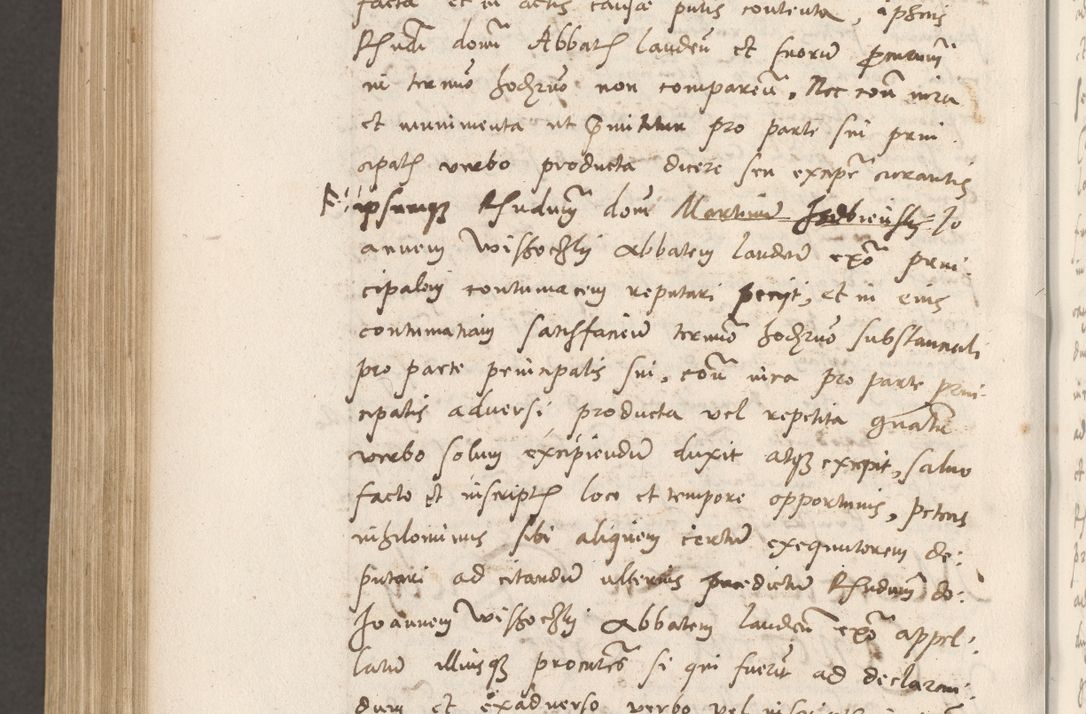 facta et in actis causæ putis contenta, ipsius
Rſndi domi Abbatis landeñ et suorum procurum
in termino hodierno non compareñ. Nec non iura
et munimenta ut prmittitur pro parte sui prin
cipalis verbo producta dicere seu excipere curantis
ipsumque Rſndum dom Martinum Isdbiensky Jo
annem Wissoczky Abbatem landeñ exo prin-
cipalem contumacem reputari petijt, et in eius
contumatiam satisfaciendo termino hodierno substanciali
pro parte principalis sui, con iura pro parte prin-
cipalis adversi producta vel repetita gnatim
verbo solum excipiendum duxit atque excipit, salvo
facto et inscriptis loco et tempore opportunis, petens
nihilominus sibi aliquem certum exequutorem de:
putari ad citandum ulterius prædictum Rſndum do:
Joannem Wissoczky Abbatem landeñ exo appel-
latum illiusque procutores si qui fuerint ad declaran-
dum et exadverso verbo vel